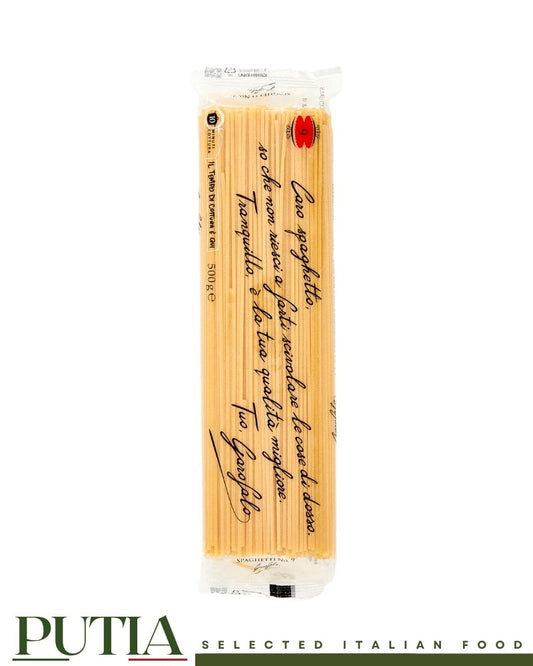 SPAGHETTI No. 9
9
10
MINUTI
COTTURA
IL TEMPO DI COTTURA È QUI
500 g e
Caro spaghetto,
so che non riesci a farti scivolare le cose di dosso.
Tranquillo, è la tua qualità migliore.
Tuo, Garofalo
SPAGHETTI No. 9
Garofalo
PUTIA
SELECTED ITALIAN FOOD